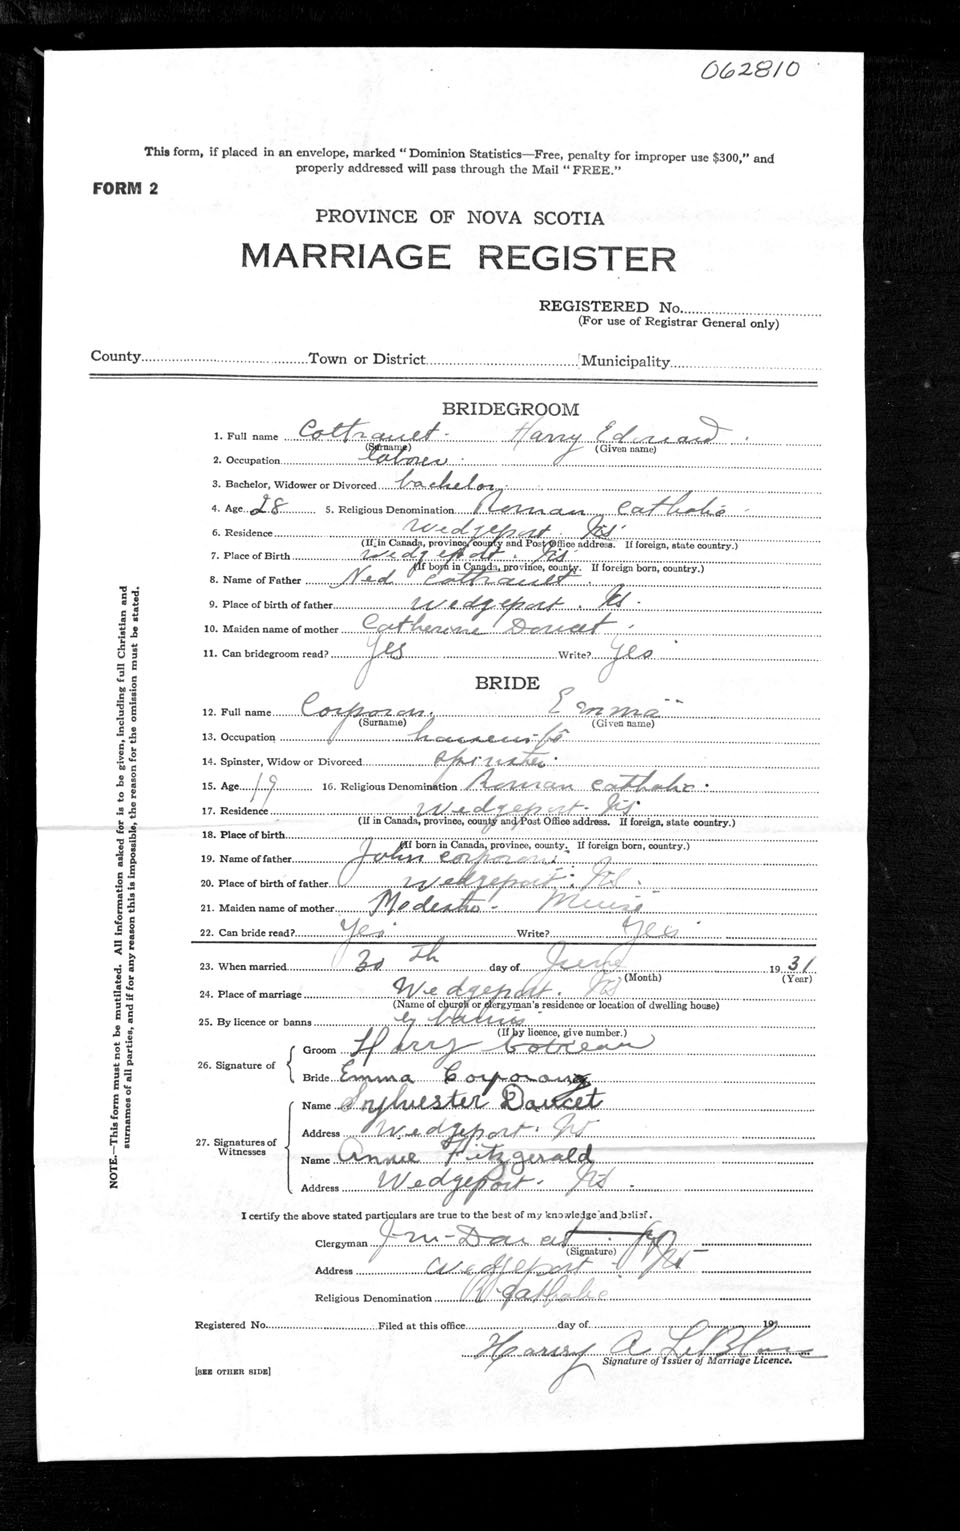 062810
This form, if placed in an envelope, marked "Dominion Statistics—Free, penalty for improper use $300," and
properly addressed will pass through the Mail "FREE."
FORM 2
PROVINCE OF NOVA SCOTIA
MARRIAGE REGISTER
REGISTERED No.
(For use of Registrar General only)
County Town or District Municipality
BRIDEGROOM
1. Full name Cottrauet Harry Edward
(Surname) (Given name)
2. Occupation laborer
3. Bachelor, Widower or Divorced bachelor
4. Age 28 5. Religious Denomination Roman Catholic
6. Residence Wedgeport NS
(If in Canada, province, county and Post Office address. If foreign, state country.)
7. Place of Birth Wedgeport. NS
(If born in Canada, province, county. If foreign born, country.)
8. Name of Father Ned Cottrauet
9. Place of birth of father Wedgeport. NS.
10. Maiden name of mother Catherine Doucet
11. Can bridegroom read? Yes Write? Yes
BRIDE
12. Full name Corporan. Emma
(Surname) (Given name)
13. Occupation
14. Spinster, Widow or Divorced Spinster.
15. Age 19 16. Religious Denomination Roman Catholic.
17. Residence Wedgeport. NS
(If in Canada, province, county and Post Office address. If foreign, state country.)
18. Place of birth
(If born in Canada, province, county. If foreign born, country.)
19. Name of father John Corporan
20. Place of birth of father Wedgeport. NS.
21. Maiden name of mother Modeste Muise
22. Can bride read? Yes Write? Yes
23. When married 30th day of June 1931
(Month) (Year)
24. Place of marriage Wedgeport. NS
(Name of church or clergyman's residence or location of dwelling house)
25. By licence or banns by banns
(If by licence, give number.)
26. Signature of
Groom Harry Cotreau
Bride Emma Corporan
27. Signatures of Witnesses
Name Sylvester Doucet
Address Wedgeport. NS
Name Annie Fitzgerald
Address Wedgeport. NS.
I certify the above stated particulars are true to the best of my knowledge and belief.
Clergyman
(Signature)
Address Wedgeport NS
Religious Denomination R Catholic
Registered No. Filed at this office day of 19
Harry A LeBlanc
Signature of Issuer of Marriage Licence.
[SEE OTHER SIDE]
NOTE.—This form must not be mutilated. All information asked for is to be given, including full Christian and
surnames of all parties, and if for any reason this is impossible, the reason for the omission must be stated.